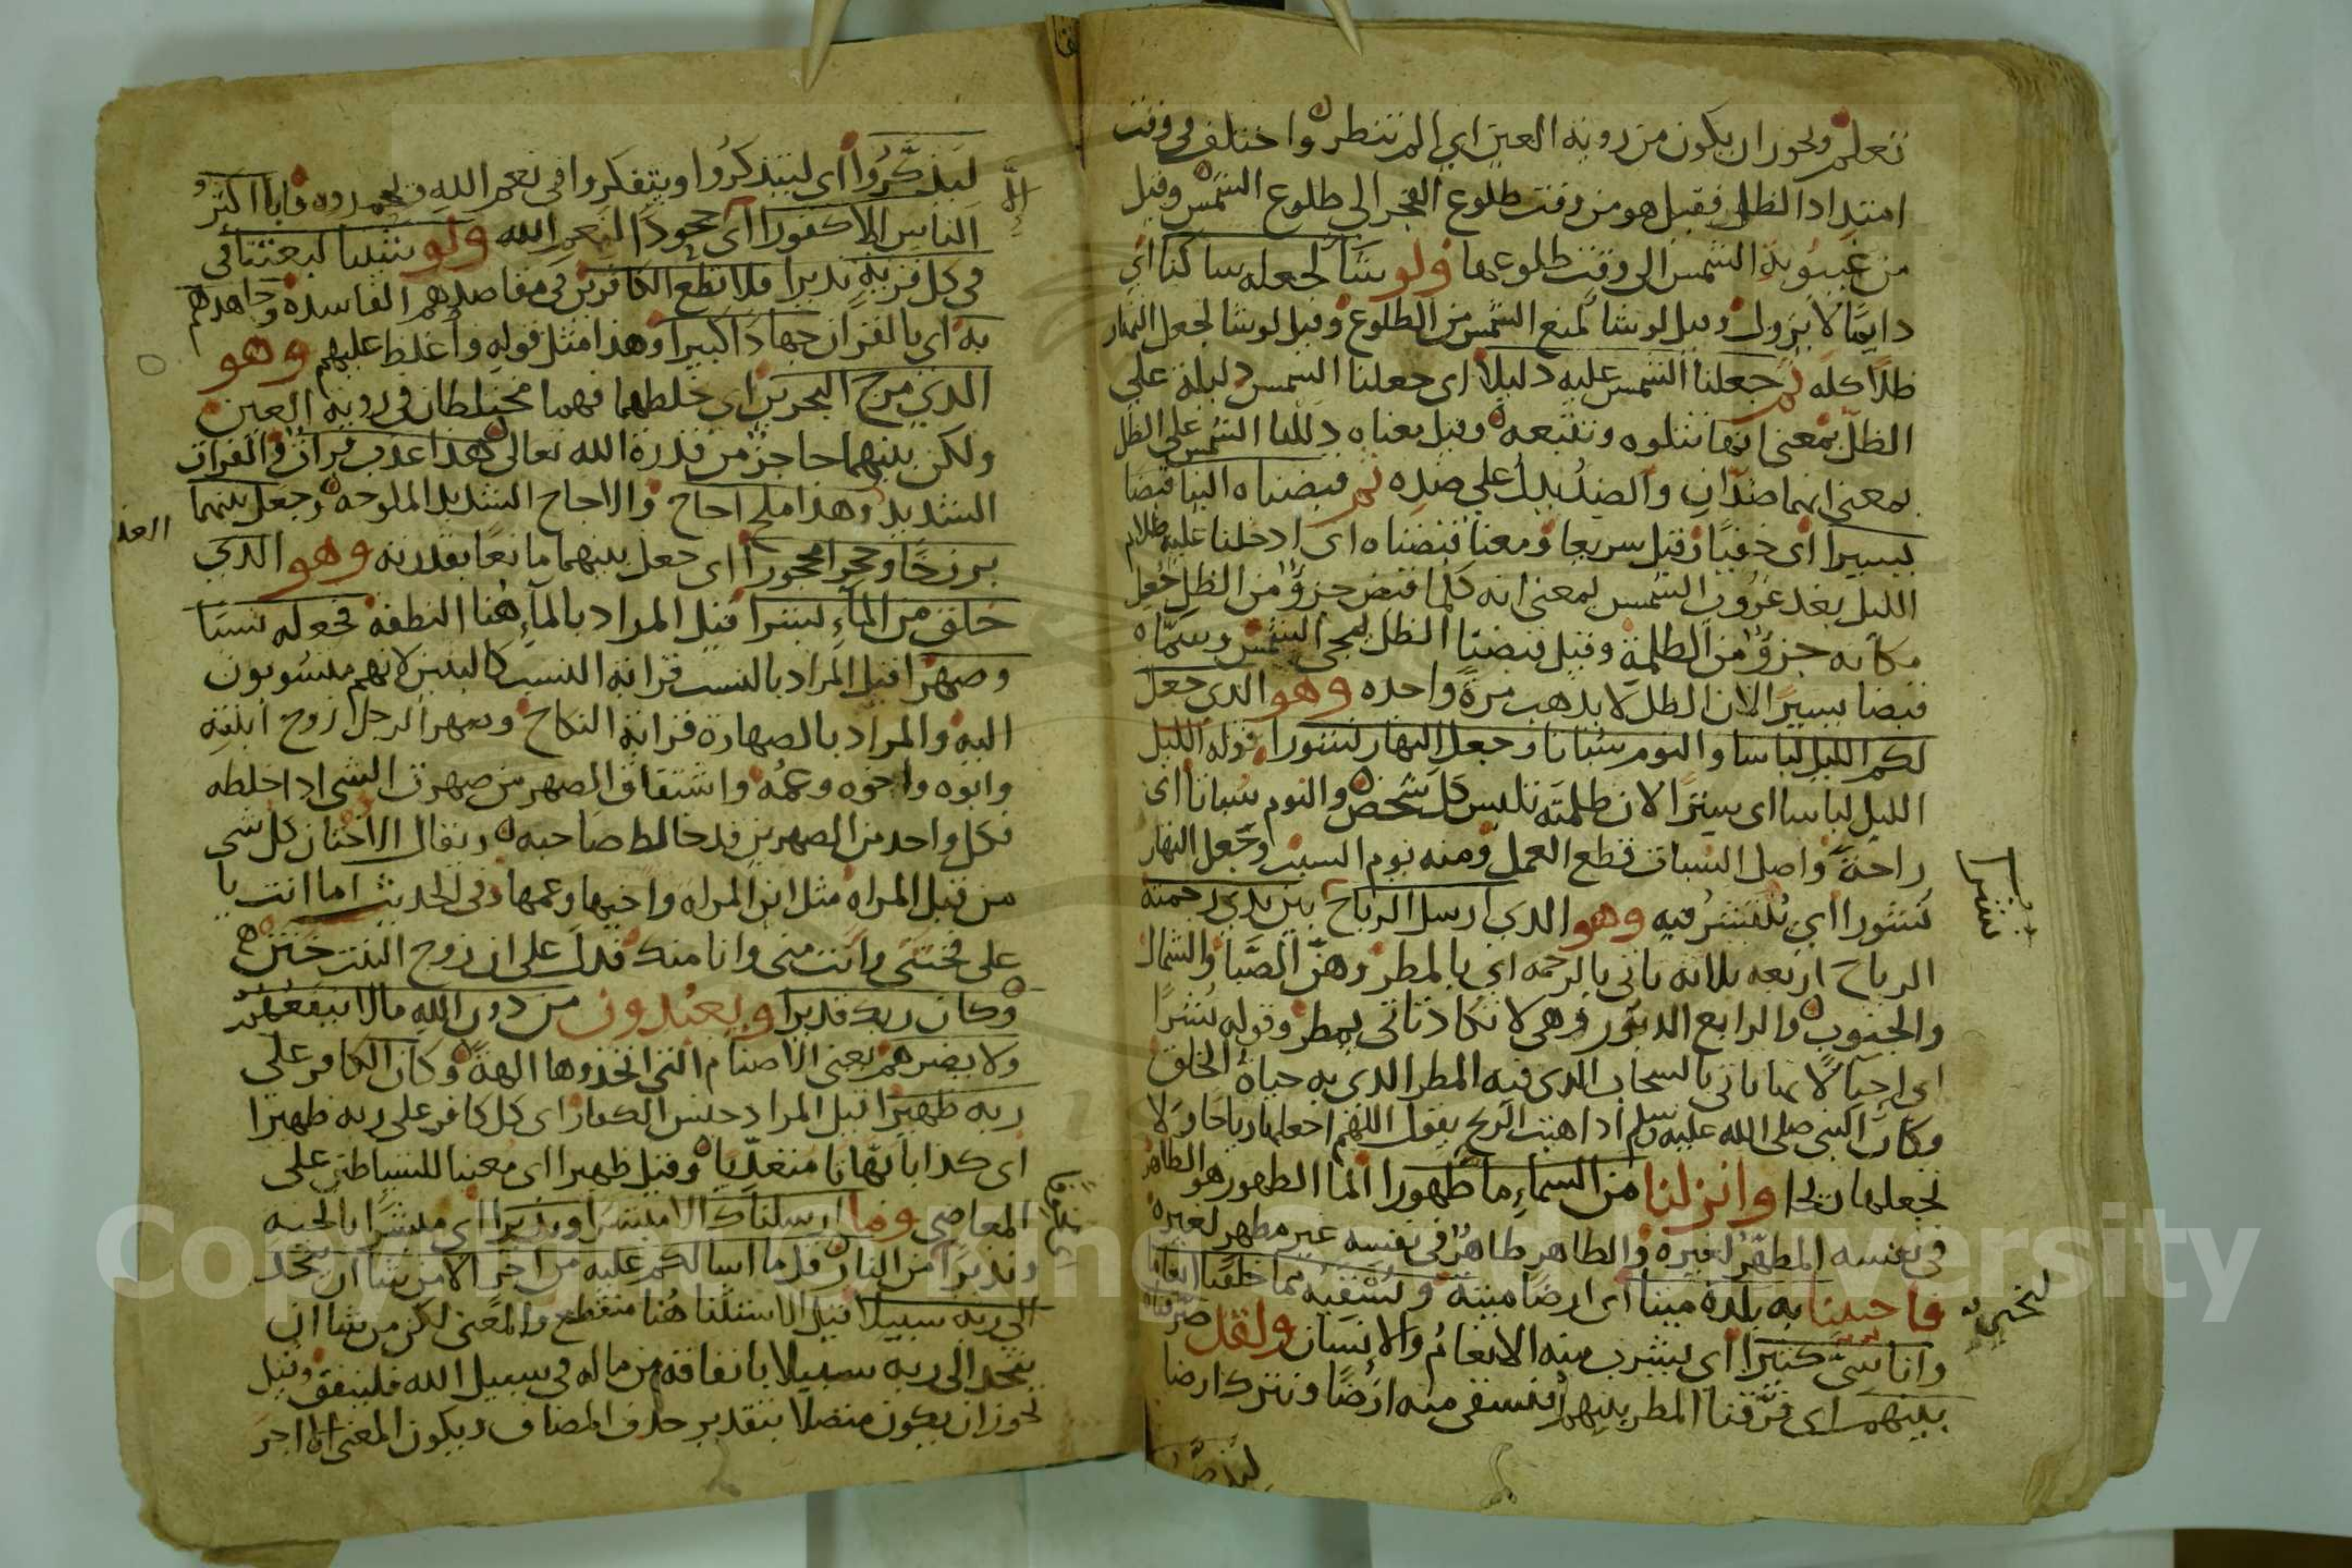 تعلم ويجوز ان يكون من روية العين اي الم تنظر واختلف في وقت
امتداد الظل فقيل هو من وقت طلوع الفجر الى طلوع الشمس وقيل
من غيبوبة الشمس الى وقت طلوعها ولو شا لجعله ساكنا اي
دايما لا يزول وقيل لو شا لمنع الشمس من الطلوع وقيل لو شا لجعل النهار
ظلا كله ثم جعلنا الشمس عليه دليلا اى جعلنا الشمس دليلة على
الظل بمعنى انها تتلوه وتتبعه وقيل معناه دللنا الشمس على الظل
بمعنى انهما ضدان والضد يدل على ضده ثم قبضناه الينا قبضا
يسيرا اى خفيا وقيل سريعا ومعنا قبضناه اى ادخلنا عليه ظلام
الليل بعد غروب الشمس بمعنى انه كلما قبض جزؤ من الظل جعل
مكانه جزؤ من الظلمة وقيل قبضنا الظل بمجي الشمس وسماه
قبضا يسيرا لان الظل لا يذهب مرة واحده وهو الدى جعل
لكم الليل لباسا والنوم سباتا وجعل النهار نشورا قوله الليل
الليل لباسا اى سترا لان ظلمته تلبس كل شخص والنوم سباتا اى
راحة واصل السبات قطع العمل ومنه يوم السبت وجعل النهار
نشورا اي ينتشر فيه وهو الدي ارسل الرياح بين يدي رحمته
الرياح اربعه ثلاثه تاتى بالرحمه اي بالمطر وهن الصبا والشمال
والجنوب والرابع الدبور وهى لا تكاد تاتى بمطر وقوله نشرا
اى احيا لانها تاتى بالسحاب الدى فيه المطر الدى به حياة الخلق
وكان النبى صلى الله عليه وسلم ادا هبت الريح يقول اللهم اجعلها رياحا ولا
تجعلها ريحا وانزلنا من السماء ما طهورا الما الطهور هو الطاهر
في نفسه المطهر لغيره والطاهر طاهر فى نفسه غير مطهر لغيره
لنحيى به فاحيينا به بلدة ميتا اى ارضا ميتة ونسقيه مما خلقنا انعاما
واناسي كثيرا اى يشرب منه الانعام والانسان ولقد صرفناه
بينهم اى فرقنا المطر بينهم فنسقى منه ارضا ونترك ارضا
نشرا
ليذكروا اى ليتذكروا ويتفكروا فى نعم الله ويحمدوه فابا اكثر
الناس الا كفورا اى جحودا لنعم الله ولو شينا لبعثنا فى
في كل قرية نذيرا فلا تطع الكافرين في مقاصدهم الفاسده وجاهدهم
به اى بالقران جهادا كبيرا وهذا مثل قوله واغلظ عليهم وهو
الدي مرج البحرين اى خلطهما فهما مختلطان فى روية العين
ولكن بينهما حاجز من قدرة الله تعالى هدا عذب فرات والفرات
الشديد العذ وهدا ملح اجاج والاجاج الشديد الملوحه وجعل بينهما
برزخا وحجرا محجورا اى جعل بينهما مانعا بقدرته وهو الدي
خلق من الماء بشرا قيل المراد بالماء هنا النطفة فجعله نسبا
وصهرا قيل المراد بالنسب قرابة النسب كالبنين لانهم منسوبون
اليه والمراد بالصهارة قرابة النكاح وصهر الرجل زوج ابنته
وابوه واخوه وعمه واشتقاق الصهر من صهرت الشى ادا خلطه
فكل واحد من الصهرين قد خالط صاحبه ويقال الاختان كل شى
من قبل المراه مثل ابن المراه واخيها وعمها وفى الحديث اما انت يا
على فختنى وانت منى وانا منك فدل على ان زوج البنت ختن
وكان ربك قديرا ويعبدون من دون الله مالا ينفعهم
ولا يضرهم يعنى الاصنام التى اتخذوها الهة وكان الكافر على
ربه ظهيرا قيل المراد جنس الكفار اى كل كافر على ربه ظهيرا
اى كدابا بهاتا متعديا وقيل ظهيرا اى معينا للشياطين على
المعاصى وما ارسلناك الا مبشرا ونذيرا اى مبشرا بالجنة
ونذيرا من النار قل ما اسالكم عليه من اجر الا من شا ان يتخذ
الى ربه سبيلا قيل الاستثنا هنا منقطع والمعنى لكن من شا ان
يتخد الى ربه سبيلا بانفاقه من ماله فى سبيل الله فلينفق وقيل
يجوز ان يكون متصلا بتقدير حذف المضاف ويكون المعنى الا اجر